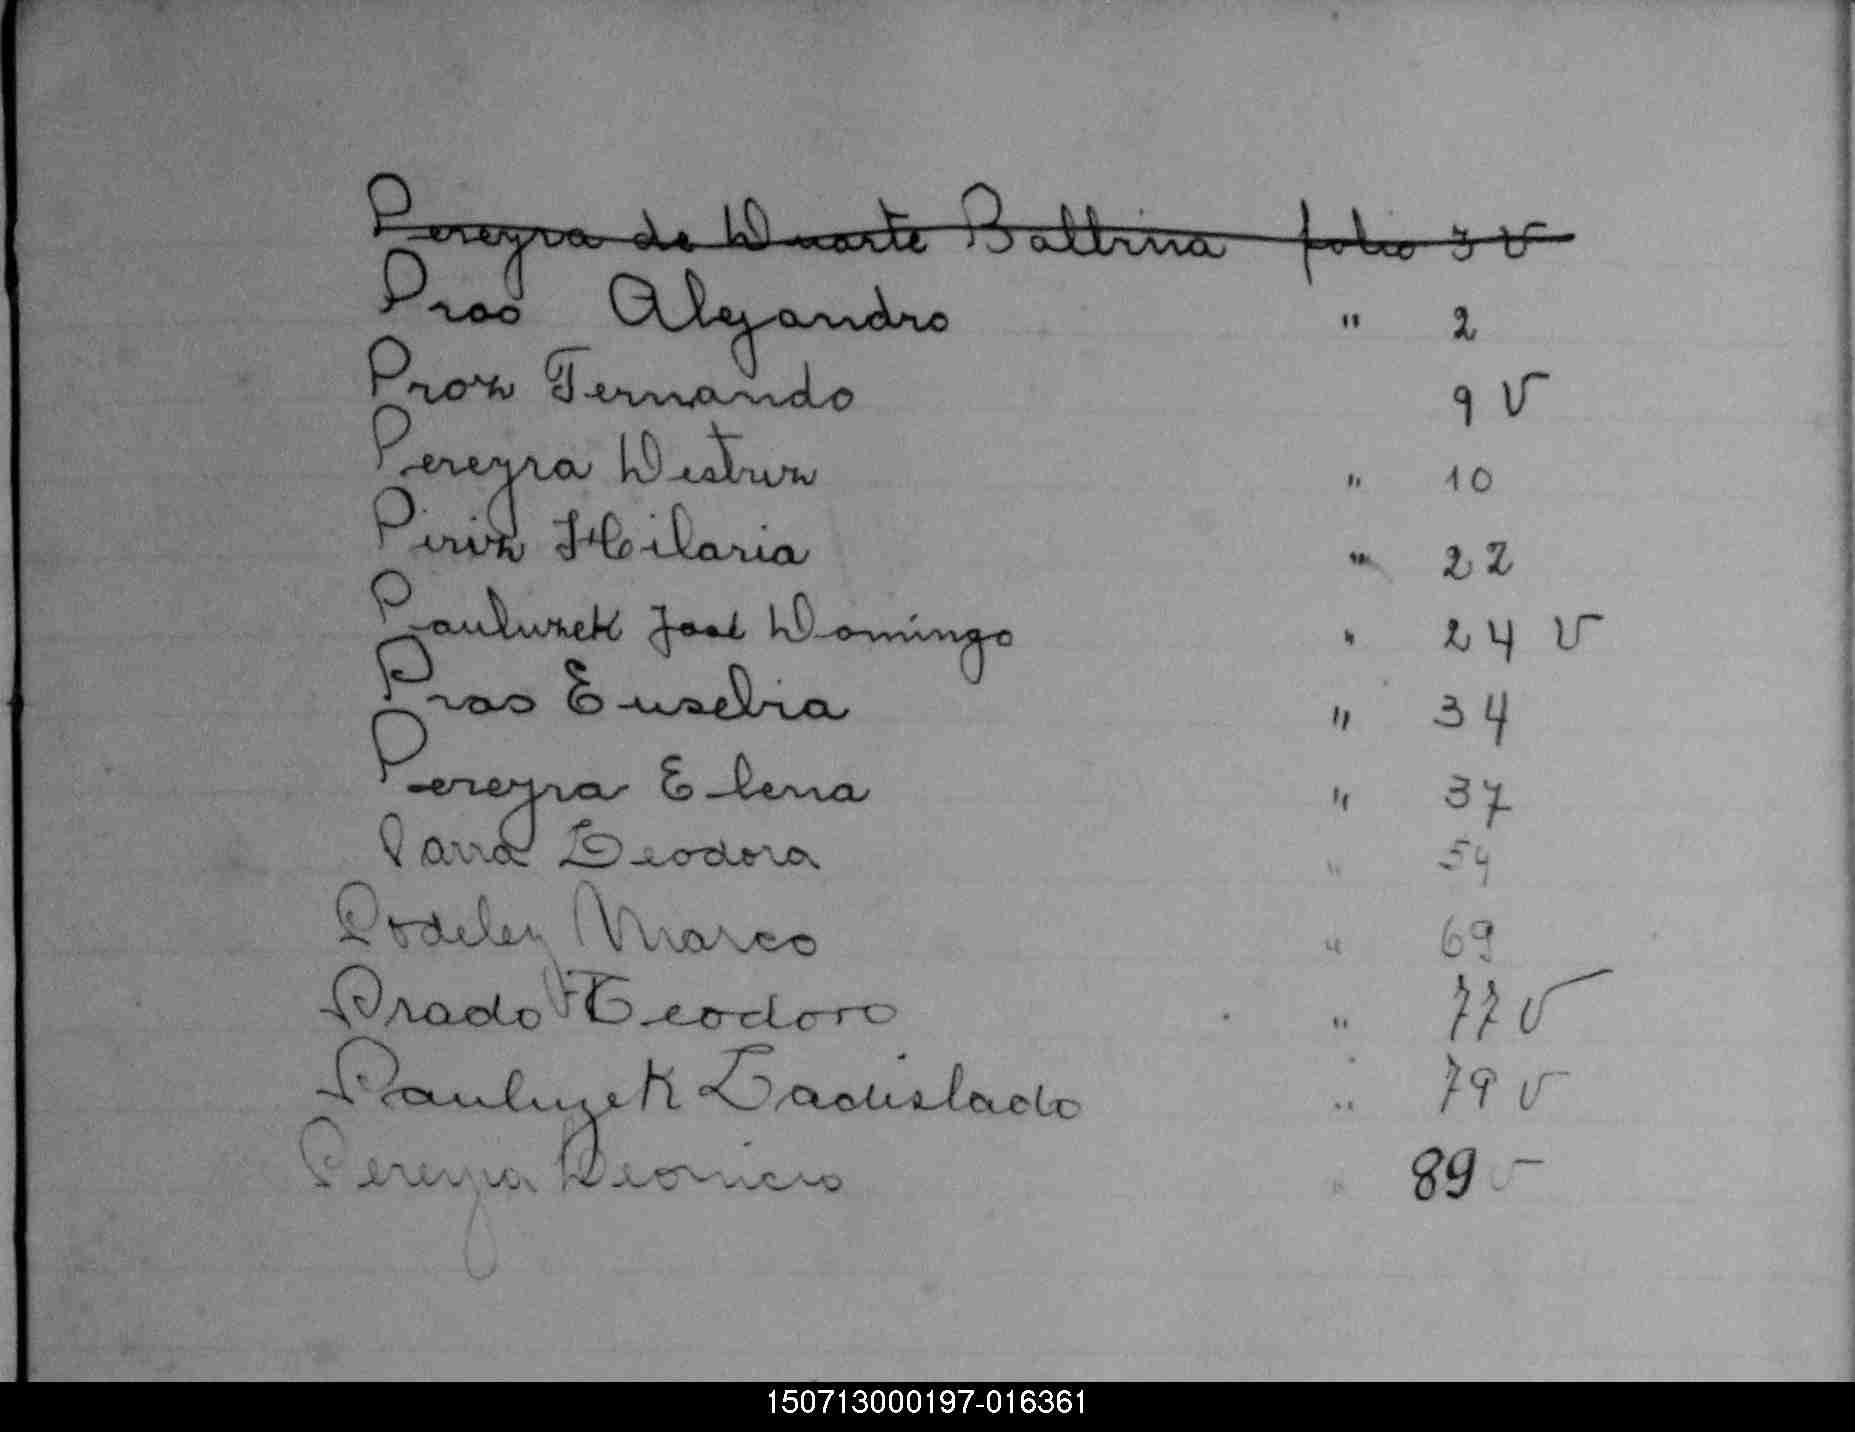 Pereyra de Duarte Baltrina folio 3 V
Prao Alejandro " 2
Proz Fernando 9 V
Pereyra Destriz " 10
Piriz Hilaria " 22
Pauluzek José Domingo " 24 V
Prao Eusebia " 34
Pereyra Elena " 37
Parra Leodora " 54
Podeley Marco " 69
Prado Teodoro " 77 V
Pauluzek Ladislado " 79 V
Pereyra Deonicio " 89 V
150713000197-016361